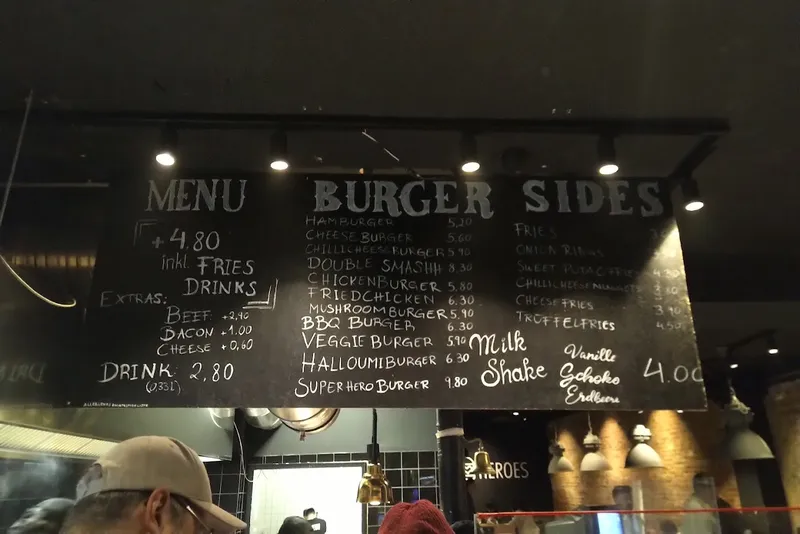 MENU
+4.80
inkl. FRIES
DRINKS
EXTRAS:
BEEF +2,90
BACON +1.00
CHEESE +0,60
DRINK: 2,80
(0,33l)
BURGER
HAMBURGER 5,20
CHEESEBURGER 5,60
CHILLICHEESEBURGER 5,90
DOUBLE SMASHH 8,30
CHICKENBURGER 5,80
FRIEDCHICKEN 6.30
MUSHROOMBURGER 5,90
BBQ BURGER 6.30
VEGGIE BURGER 5.90
HALLOUMIBURGER 6.30
SUPERHEROBURGER 9.80
SIDES
FRIES
ONION RINGS
SWEET POTATO FRIES 4.30
CHILLICHEESENUGGETS
CHEESE FRIES 3.90
TRÜFFELFRIES 4,50
Milk
Shake
Vanille
Schoko
Erdbeere
4.00
HEROES